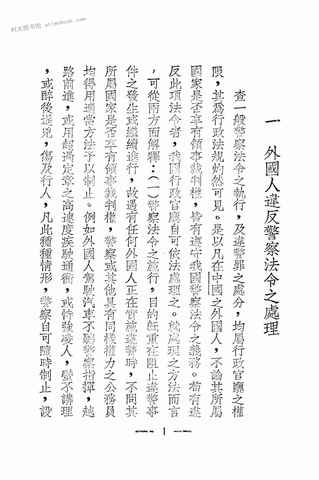 一　外國人違反警察法令之處理
查一般警察法令之執行，及違警罪之處分，均屬行政官廳之權
限，其爲行政法規灼然可見。是以凡在中國之外國人，不論其所屬
國家是否享有領事裁判權，皆有遵守我國警察法令之義務。若有違
反此項法令者，我國行政官廳自可依法處理之。就處理之方法而言
，可從兩方面解釋：（一）警察法令之施行，目的旣重在阻止違警事
件之發生或繼續進行，故遇有任何外國人正在實施違警時，不問其
所屬國家是否享有領事裁判權，警察或其他具有同樣權力之公務員
均得用適當方法予以制止。例如外國人駕駛汽車不顧警察指揮，越
路前進，或用超過定章之高速度疾駛通衢，或恃強凌人，蠻不講理
，或醉後逞兇，傷及行人，凡此種種情形，警察自可隨時制止，設
— 1 —